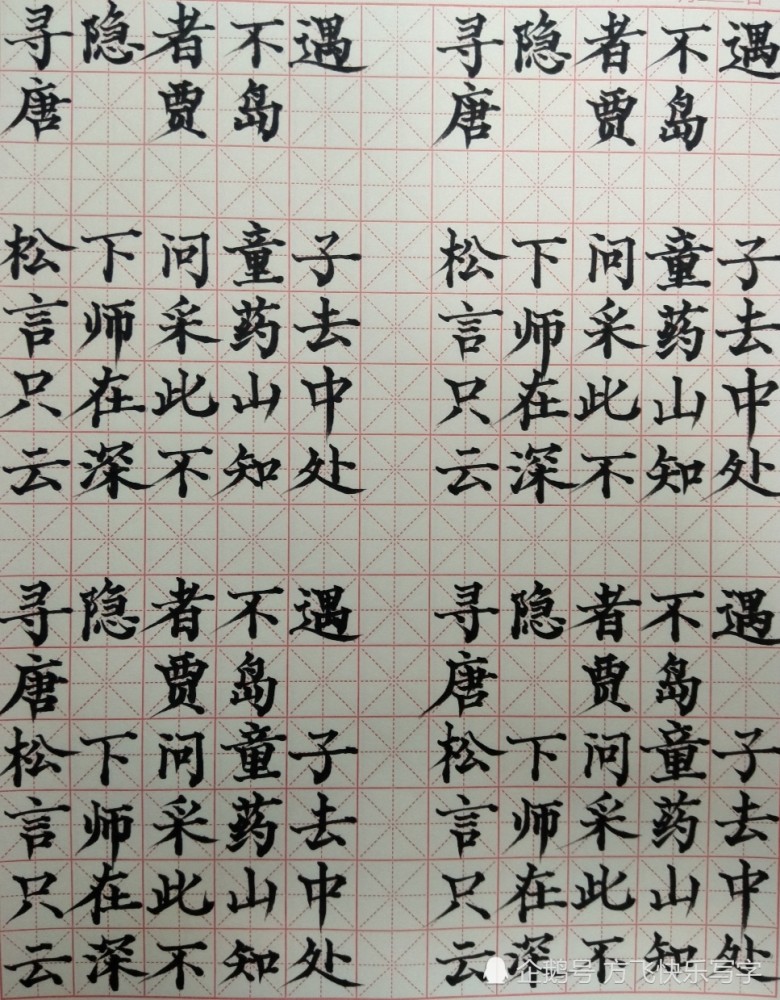 寻隐者不遇 寻隐者不遇
唐 贾岛 唐 贾岛
松下问童子 松下问童子
言师采药去 言师采药去
只在此山中 只在此山中
云深不知处 云深不知处
寻隐者不遇 寻隐者不遇
唐 贾岛 唐 贾岛
松下问童子 松下问童子
言师采药去 言师采药去
只在此山中 只在此山中
云深不知处 云深不知处
企鹅号 方飞快乐写字